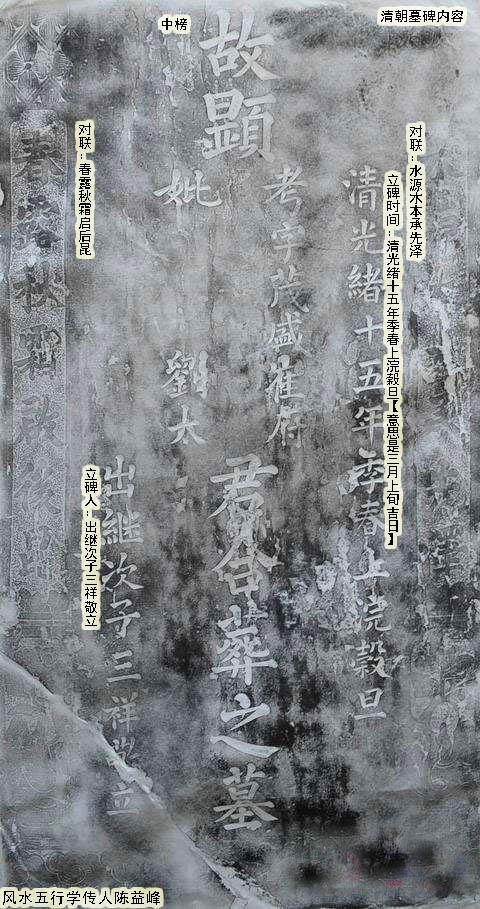 清朝墓碑内容
中榜
对联：水源木本承先泽
立碑时间：清光绪十五年季春上浣穀旦【意思是三月上旬吉日】
清光緒十五年季春上浣穀旦
故顯
考字茂盛崔府
妣 劉太
君合葬之墓
出継次子三祥敬立
立碑人：出继次子三祥敬立
对联：春露秋霜启后昆
春露秋霜
风水五行学传人陈益峰